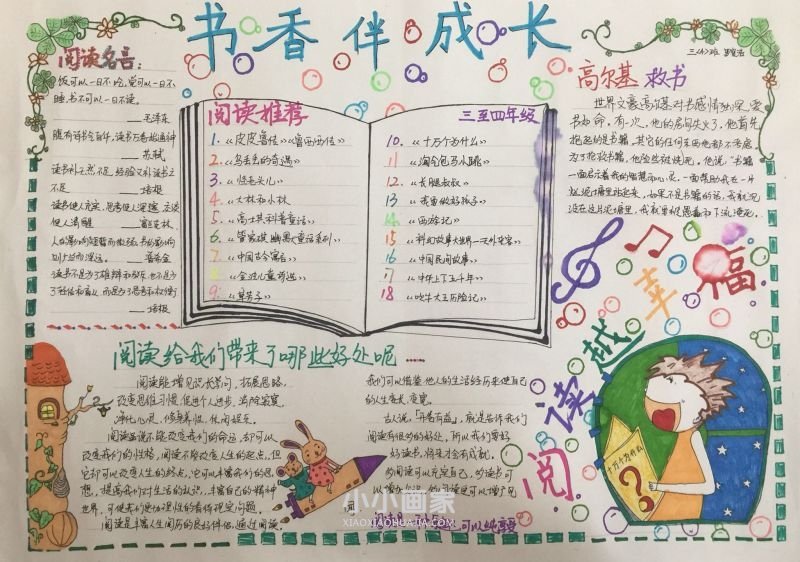 书香伴成长
三(4)班
阅读名言：
饭可以一日不吃，觉可以一日不
睡，书不可以一日不读。
——毛泽东
腹有诗书气自华，读书万卷始通神
——苏轼
读书补天然之不足，经验又补读书之
不足
——培根
读书使人充实，思考使人深邃，交谈
使人清醒
——富兰克林
——培根
阅读推荐
三至四年级
1.《皮皮鲁传》《鲁西西传》
2.《乌丢丢的奇遇》
3.《怪老头儿》
4.《大林和小林》
5.《高士其科普童话》
6.《管家琪幽默童话系列》
7.《中国古今寓言》
8.《金波儿童诗选》
9.《草房子》
10.《十万个为什么》
11《淘气包马小跳》
12《长腿叔叔》
13《我要做好孩子》
14《西游记》
15《科幻故事大世界—天外来客》
16《中国民间故事》
17《中华上下五千年》
18《吹牛大王历险记》
高尔基救书
世界文豪高尔基对书感情独深，爱
书如命。有一次，他的房间失火了，他首先
抱起的是书籍，其它的任何东西他都不考虑
为了抢救书籍，他险些被烧死。他说："书籍
一面启示着我的智慧和心灵，一面帮助我在一片
烂泥塘里站起来，如果不是书籍的话，我就沉
没在这片泥塘里，我就要被愚蠢和下流淹死。
阅读越幸福
十万个为什么
?
阅读给我们带来了哪些好处呢……
阅读能增见识长学问，拓展思路。
改变思维习惯，促进个人进步，消除寂寞，
净化心灵，修身养性，休闲娱乐。
阅读虽说不能改变我们的命运，却可以
改变我们的性格，阅读不能改变人生的起点，但
它却可以改变人生的终点，它可以丰富你们的思
想，提高我们对生活的认识，丰富自己的精神
世界，可使我们更加理性的看待现实问题。
阅读是丰富人生阅历的良好伴侣，通过阅读
我们可以借鉴他人的生活经历来使自己
的人生变长，变宽。
古人说，"开卷有益"，就是告诉我们
阅读有很多的好处，所以我们要好
好读书，将来才会有成就。
多阅读可以充实自己，多读书可
小小画家
XIAOXIAOHUAJIA.COM